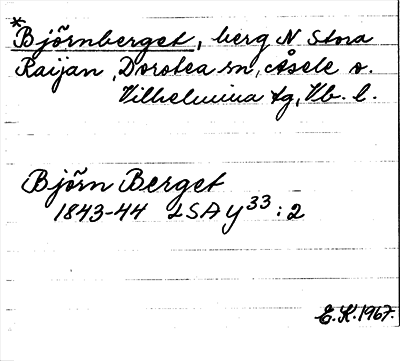 *Björnberget, berg N Stora
Raijan, Dorotea sn, Åsele o.
Vilhelmina tg, Vb. l.
Björn Berget
1843-44 LSA Y³³: 2
E. K. 1967.